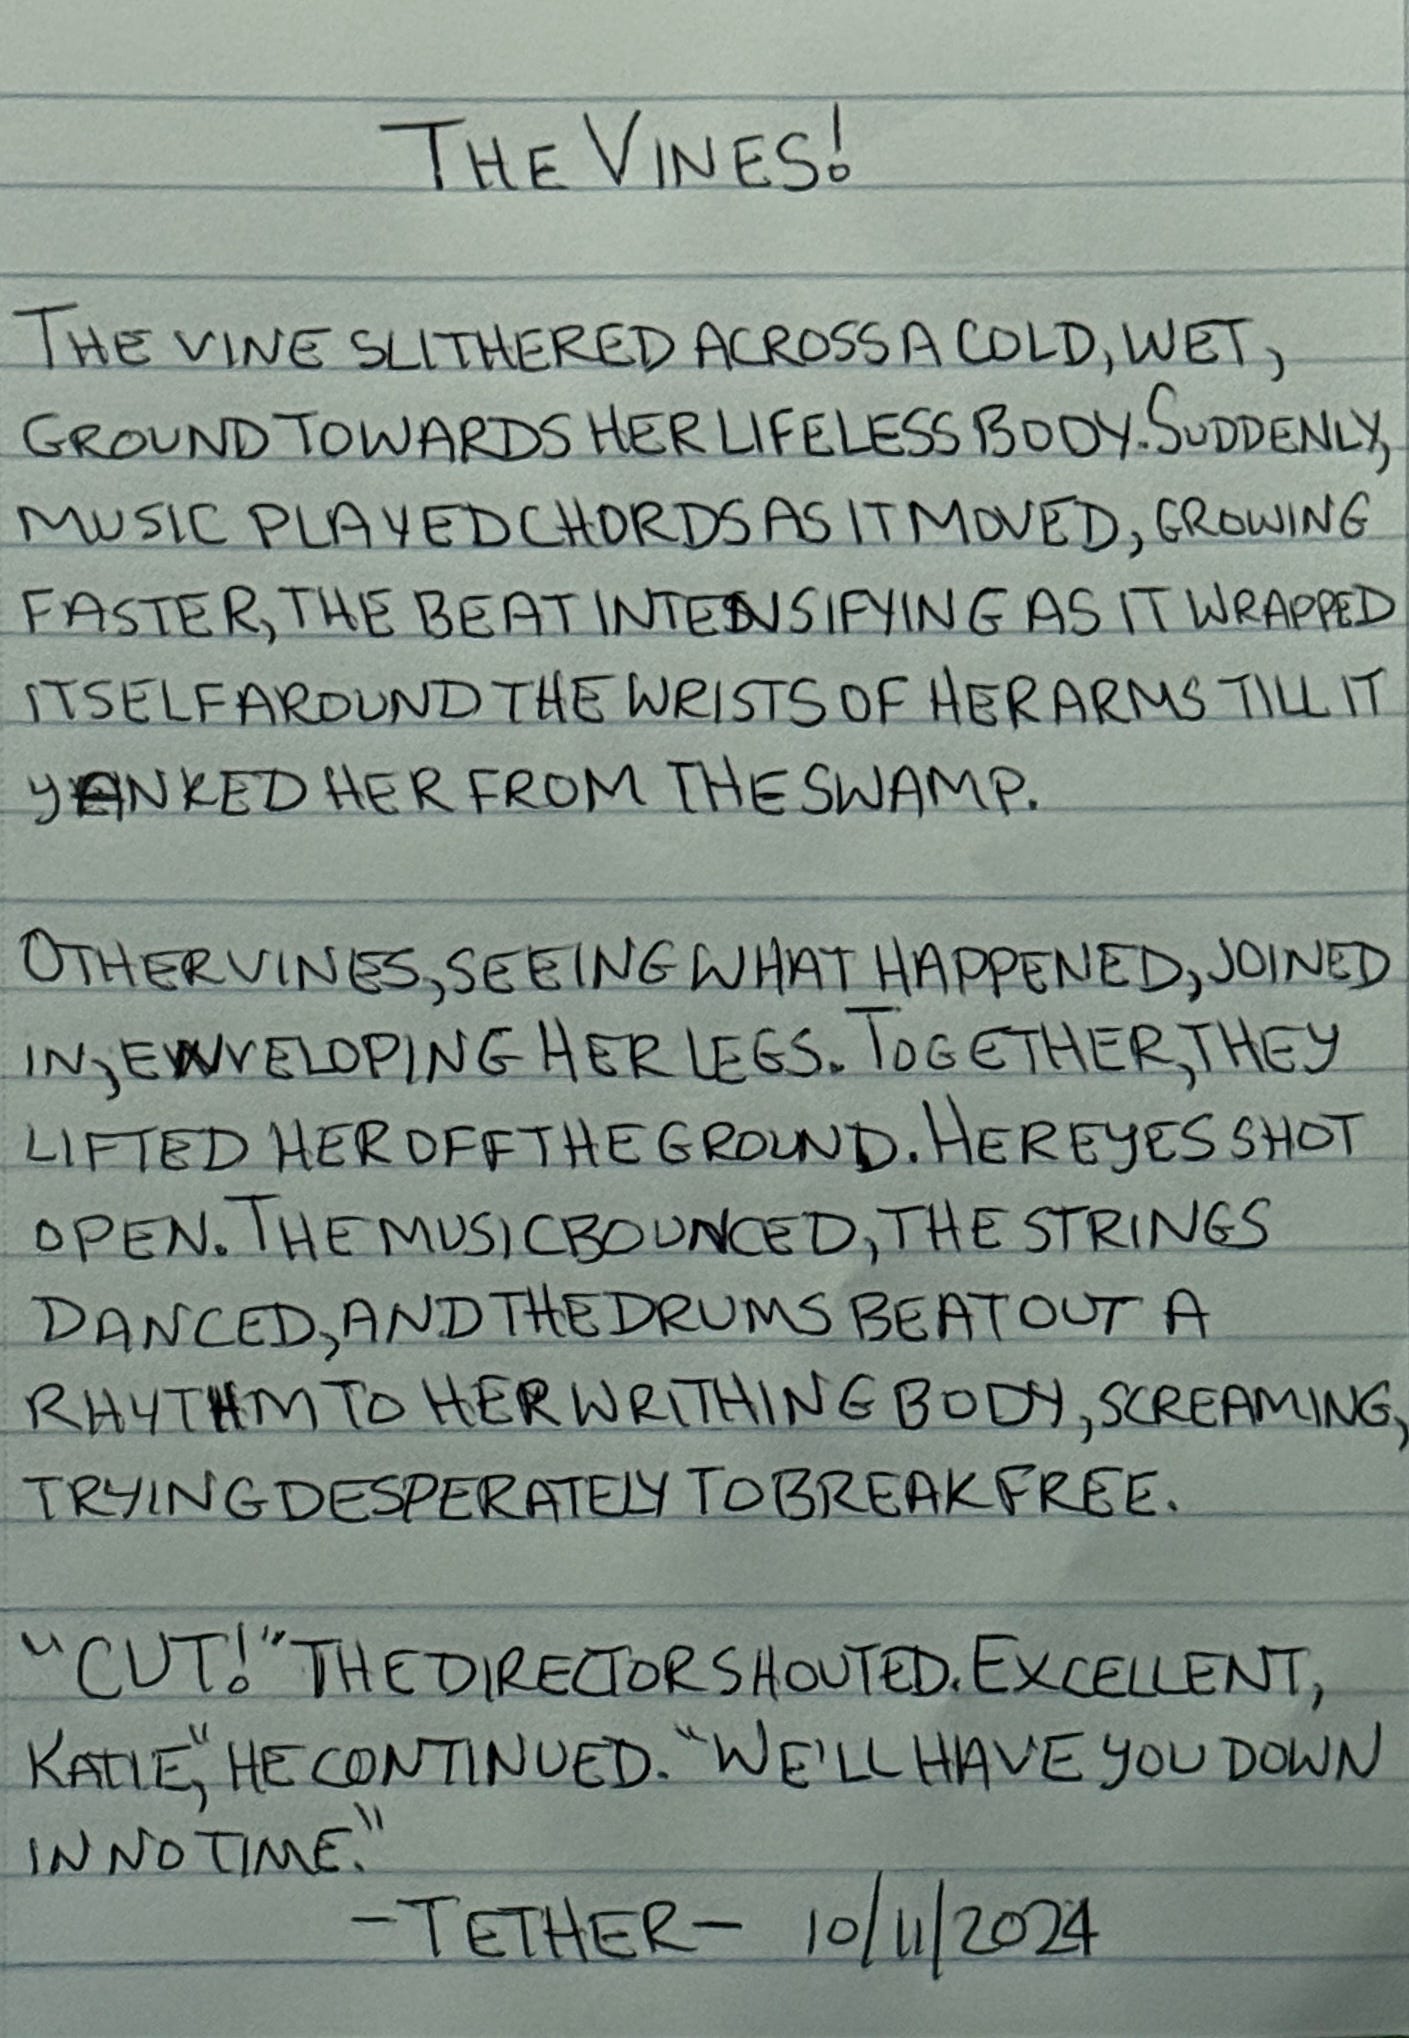 THE VINES!
THE VINE SLITHERED ACROSS A COLD, WET,
GROUND TOWARDS HER LIFELESS BODY. SUDDENLY,
MUSIC PLAYED CHORDS AS IT MOVED, GROWING
FASTER, THE BEAT INTENSIFYING AS IT WRAPPED
ITSELF AROUND THE WRISTS OF HER ARMS TILL IT
YANKED HER FROM THE SWAMP.
OTHER VINES, SEEING WHAT HAPPENED, JOINED
IN, ENVELOPING HER LEGS. TOGETHER, THEY
LIFTED HER OFF THE GROUND. HER EYES SHOT
OPEN. THE MUSIC BOUNCED, THE STRINGS
DANCED, AND THE DRUMS BEAT OUT A
RHYTHM TO HER WRITHING BODY, SCREAMING,
TRYING DESPERATELY TO BREAK FREE.
"CUT!" THE DIRECTOR SHOUTED. EXCELLENT,
KATIE," HE CONTINUED. "WE'LL HAVE YOU DOWN
IN NO TIME."
-TETHER- 10/11/2024